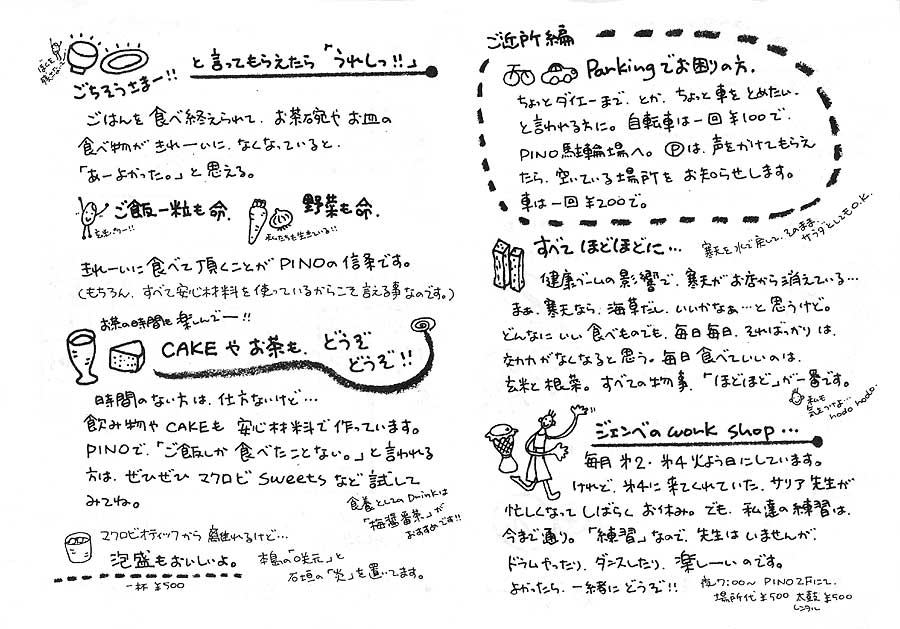 ごちそうさまー!! と言ってもらえたら「うれしっ!!」
ごはんを食べ終えられて、お茶碗やお皿の
食べ物がきれーいに、なくなっていると、
「あーよかった。」と思える。
ご飯一粒も命、
野菜も命、
私たちも生きいる!!
きれーいに食べて頂くことがPINOの信条です。
(もちろん、すべて安心材料を使っているからこそ言える事なのです。)
お茶の時間も楽しんでー!!
CAKEやお茶も、どうぞ
どうぞ!!
時間のない方は、仕方ないけど…
飲み物やCAKEも安心材料で作っています。
PINOで、「ご飯しか食べたことない。」と言われる
方は、ぜひぜひマクロビSweetsなど試して
みてね。
食養としてのDrinkは
「梅醤番茶」が
おすすめです!!
マクロビオティックから離れるけど…
泡盛もおいしいよ。
一杯 ¥500
本島の「咲元」と
石垣の「炎」を置いてます。
ご近所編
Parkingでお困りの方、
ちょっとダイエーまで、とか、ちょっと車をとめたい、
と言われる方に。自転車は一回¥100で、
PINO駐輪場へ。Ⓟは、声をかけてもらえ
たら、空いている場所をお知らせします。
車は一回¥200で。
すべてほどほどに…
寒天を水で戻して、そのまま…
サラダとしてもO.K.
健康ブームの影響で、寒天がお店から消えている…
まぁ、寒天なら、海草だし、いいかなぁ…と思うけど。
どんなにいい食べものでも、毎日毎日、そればっかりは、
効力がなくなると思う。毎日食べていいのは、
玄米と根菜。すべての物事、「ほどほど」が一番です。
私も
気をつけよ…
hodo hodo.
ジェンベのwork shop…
毎月第2・第4火よう日にしています。
けれど、第4に来てくれていた、サリア先生が
忙しくなってしばらくお休み。でも、私達の練習は、
今まで通り。「練習」なので、先生はいませんが、
ドラムやったり、ダンスしたり、楽しーいのです。
よかったら、一緒にどうぞ!!
夜7:00〜 PINO 2Fにて。
場所代¥500 太鼓¥500
レンタル